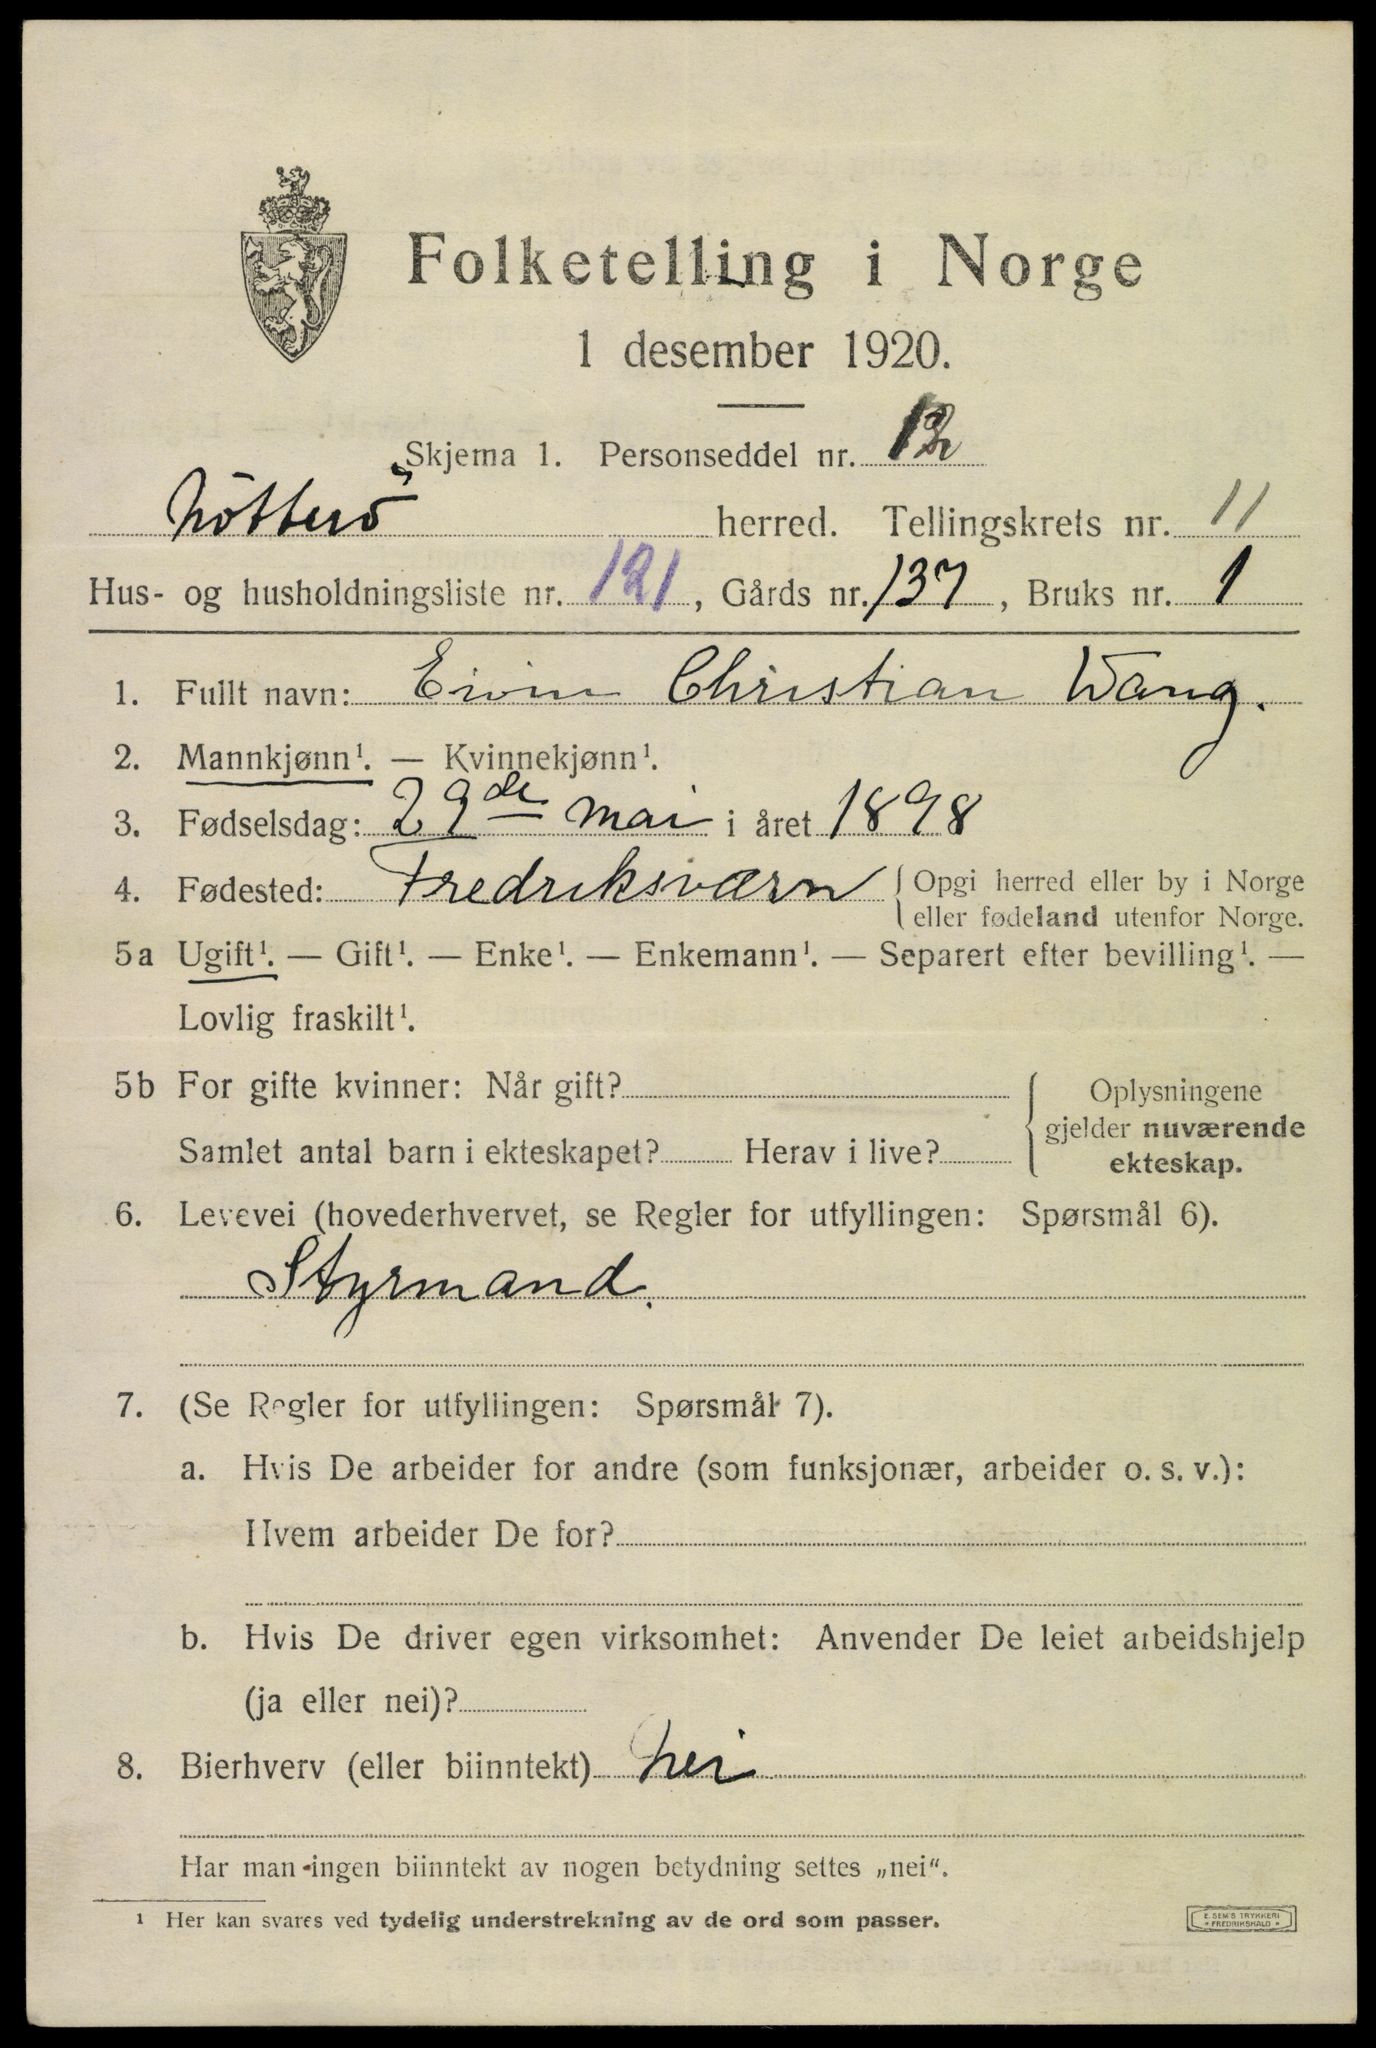 Folketelling i Norge
1 desember 1920.
Skjema 1. Personseddel nr. 12
Nötterö herred. Tellingskrets nr. 11
Hus- og husholdningsliste nr. 121, Gårds nr. 137, Bruks nr. 1
1. Fullt navn: Eivin Christian Wang.
2. Mannkjønn¹. — Kvinnekjønn¹.
3. Fødselsdag: 29de mai i året 1898
4. Fødested: Fredriksværn Opgi herred eller by i Norge
eller fødeland utenfor Norge.
5a Ugift¹. — Gift¹. — Enke¹. — Enkemann¹. — Separert efter bevilling¹. —
Lovlig fraskilt¹.
5b For gifte kvinner: Når gift?
Samlet antal barn i ekteskapet? Herav i live?
Oplysningene
gjelder nuværende
ekteskap.
6. Levevei (hovederhvervet, se Regler for utfyllingen: Spørsmål 6).
Styrmand.
7. (Se Regler for utfyllingen: Spørsmål 7).
a. Hvis De arbeider for andre (som funksjonær, arbeider o. s. v.):
Hvem arbeider De for?
b. Hvis De driver egen virksomhet: Anvender De leiet arbeidshjelp
(ja eller nei)?
8. Bierhverv (eller biinntekt) nei
Har man ingen biinntekt av nogen betydning settes „nei“.
¹ Her kan svares ved tydelig understrekning av de ord som passer.
E. SEM'S TRYKKERI
FREDRIKSHALD